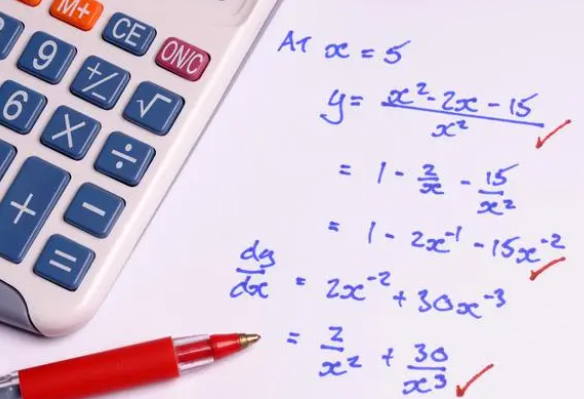 M+
CE
ON/C
9
+/−
√
6
X
÷
+
−
=
At x = 5
y = x² - 2x - 15 / x²
= 1 - 2/x - 15/x²
= 1 - 2x⁻¹ - 15x⁻²
dy/dx = 2x⁻² + 30x⁻³
= 2/x² + 30/x³